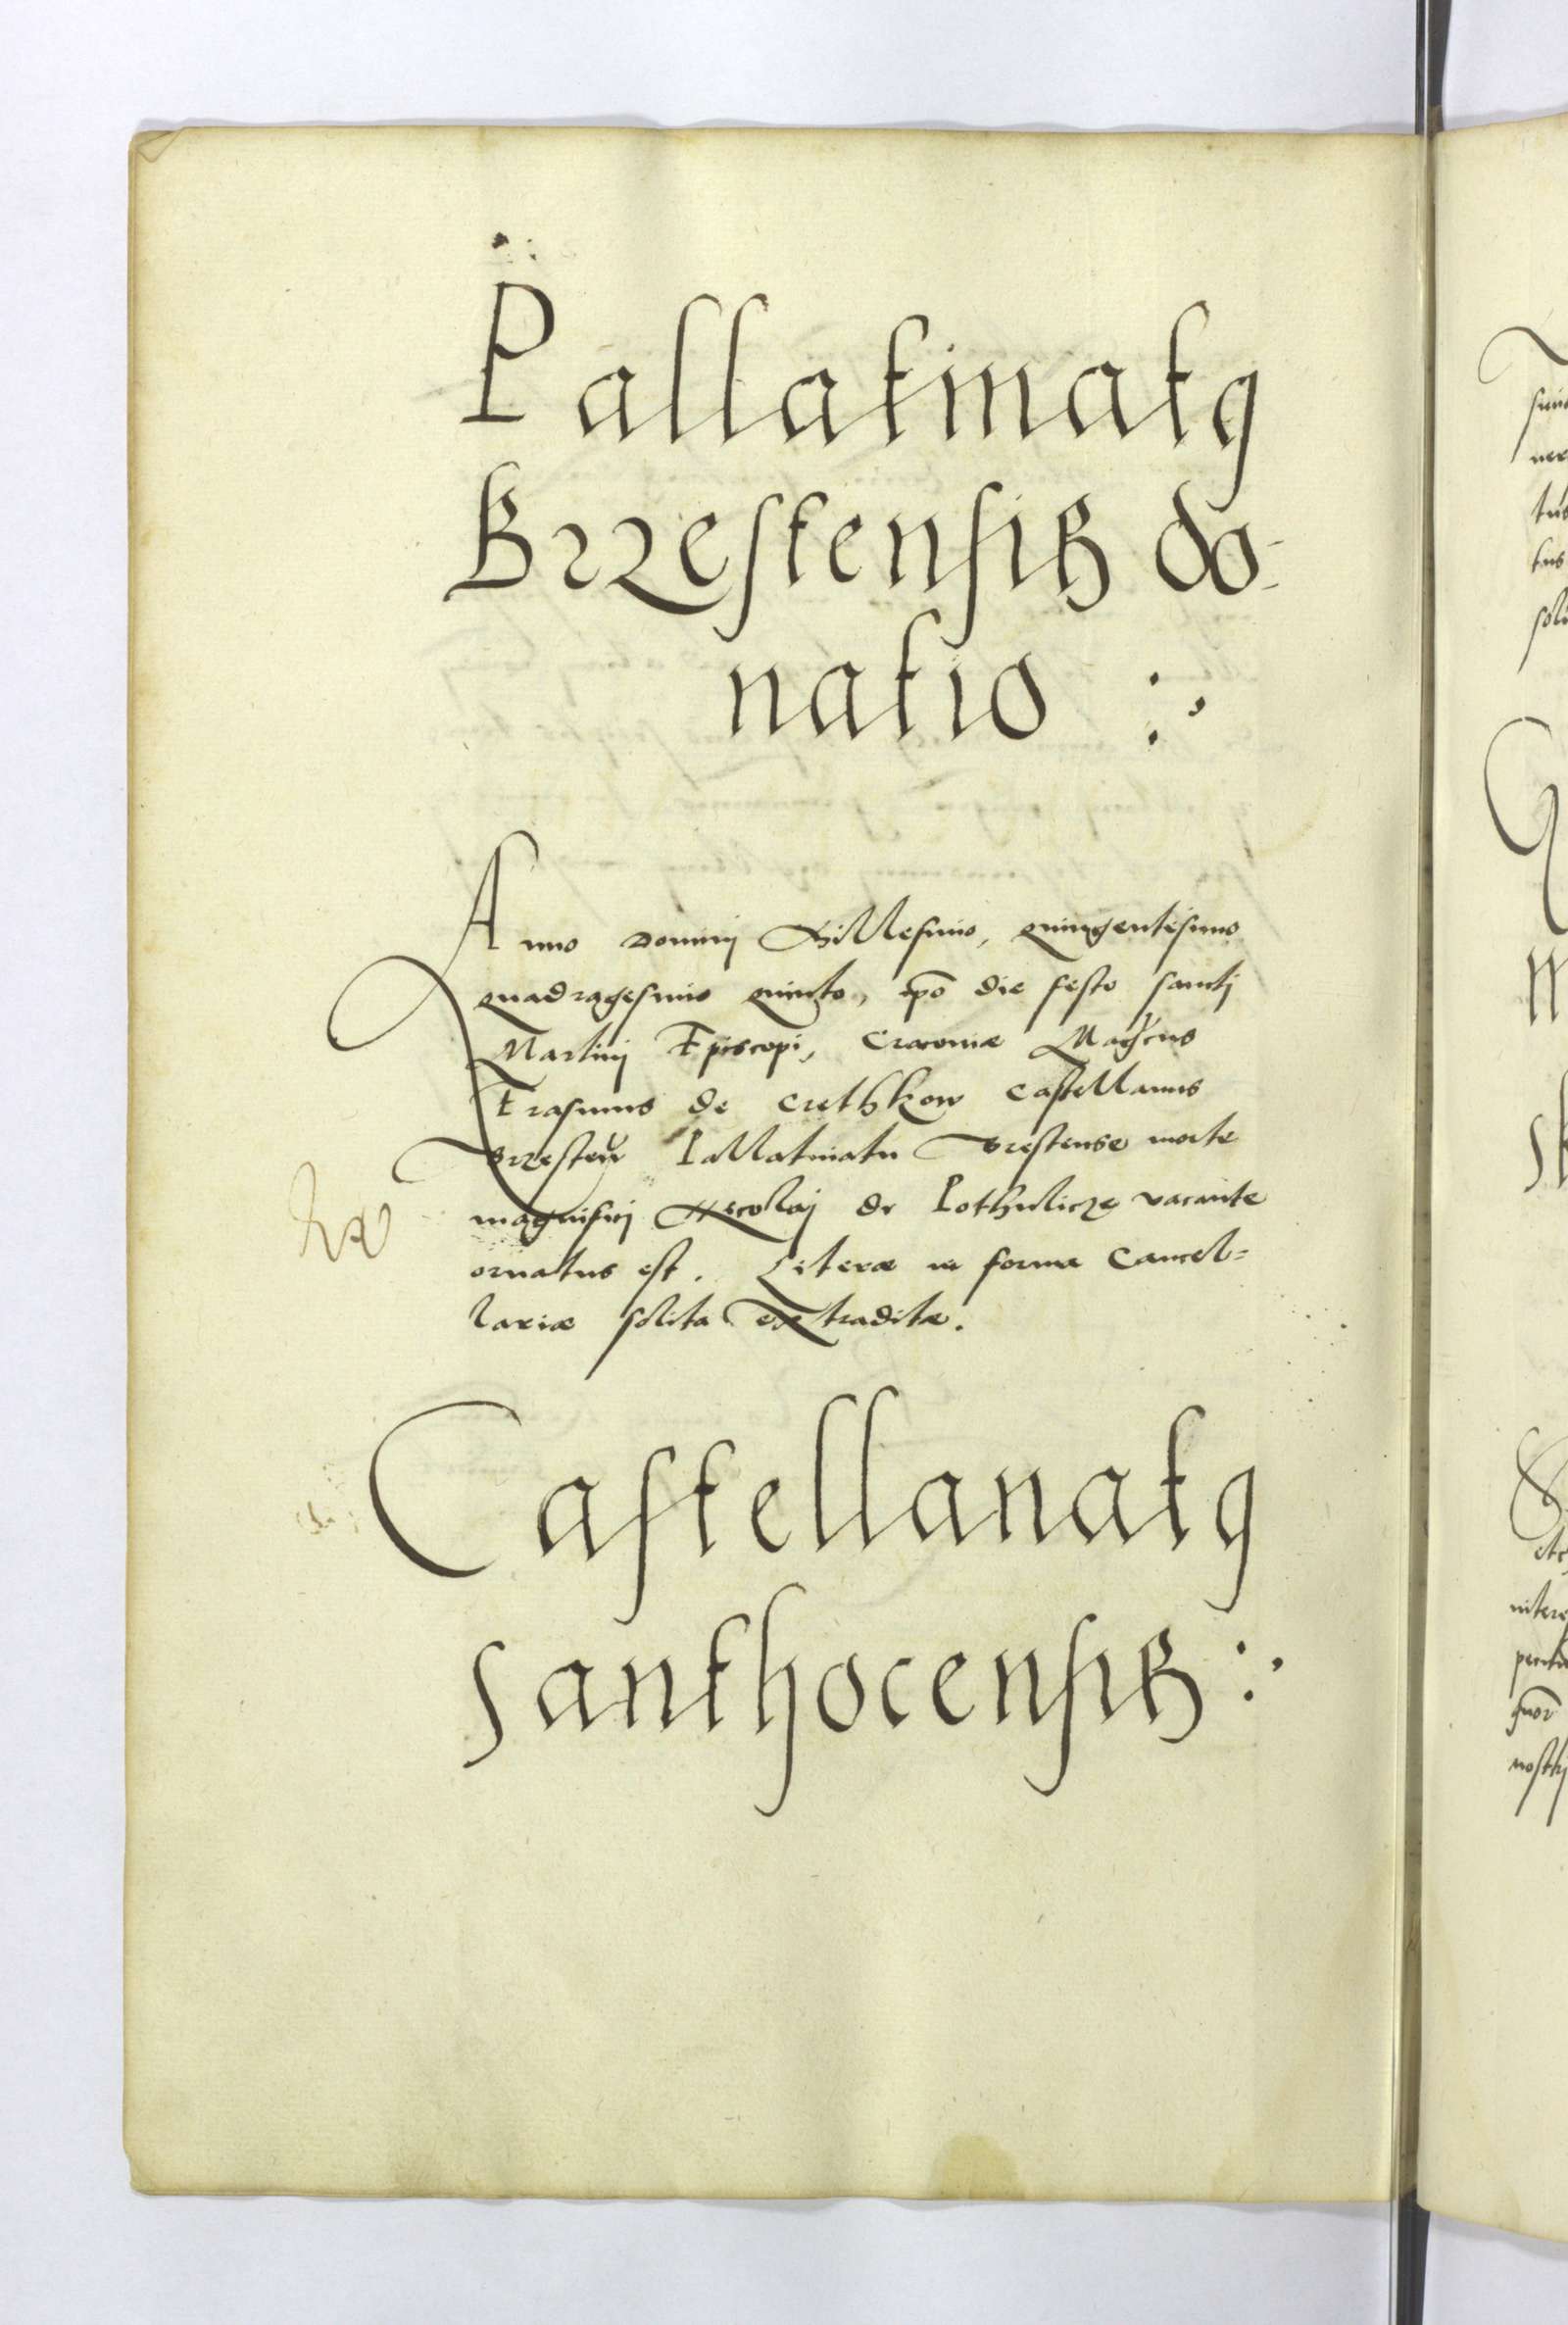 Pallatinatꝯ
Brzestensis do-
natio :,
Anno Dominj Millesimo, quingentesimo
quadragesimo quinto, ipō die festo sanctj
Martinj Episcopi, Cracoviæ Magcus
Erasmus de Crethkow Castellanus
Brzesteñ Pallatinatu Brestense morte
magnificj Nicolaj de Pothulicze vacante
ornatus est. Literæ in forma Cancel=
lariæ solita extraditæ.
Castellanatꝯ
Santhocensis :,